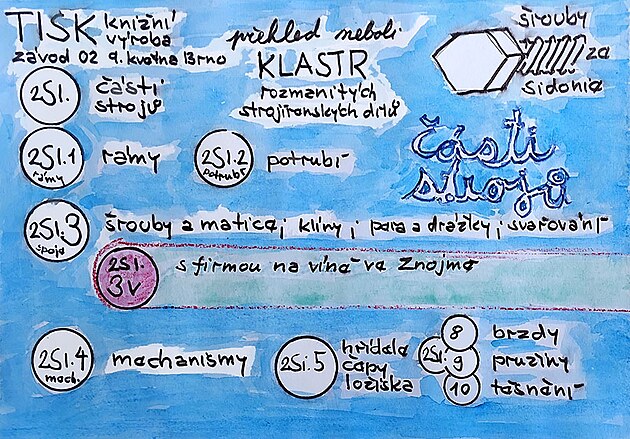 TISK knižní výroba
závod 02 9. května Brno
přehled neboli
KLASTR
rozmanitých
strojírenských dílů
šrouby
za
Sidonie
2SI.
části
strojů
části
strojů
2SI.1
rámy
rámy
2SI.2
potrubí
potrubí
2SI.3
spoje
šrouby a matice; klíny; pera a drážky; svařování
2SI.
3v
s firmou na víně ve Znojmě
2SI.4
mech.
mechanismy
2SI.5
hřídele
čepy
ložiska
2SI.
8 brzdy
9 pružiny
10 těsnění